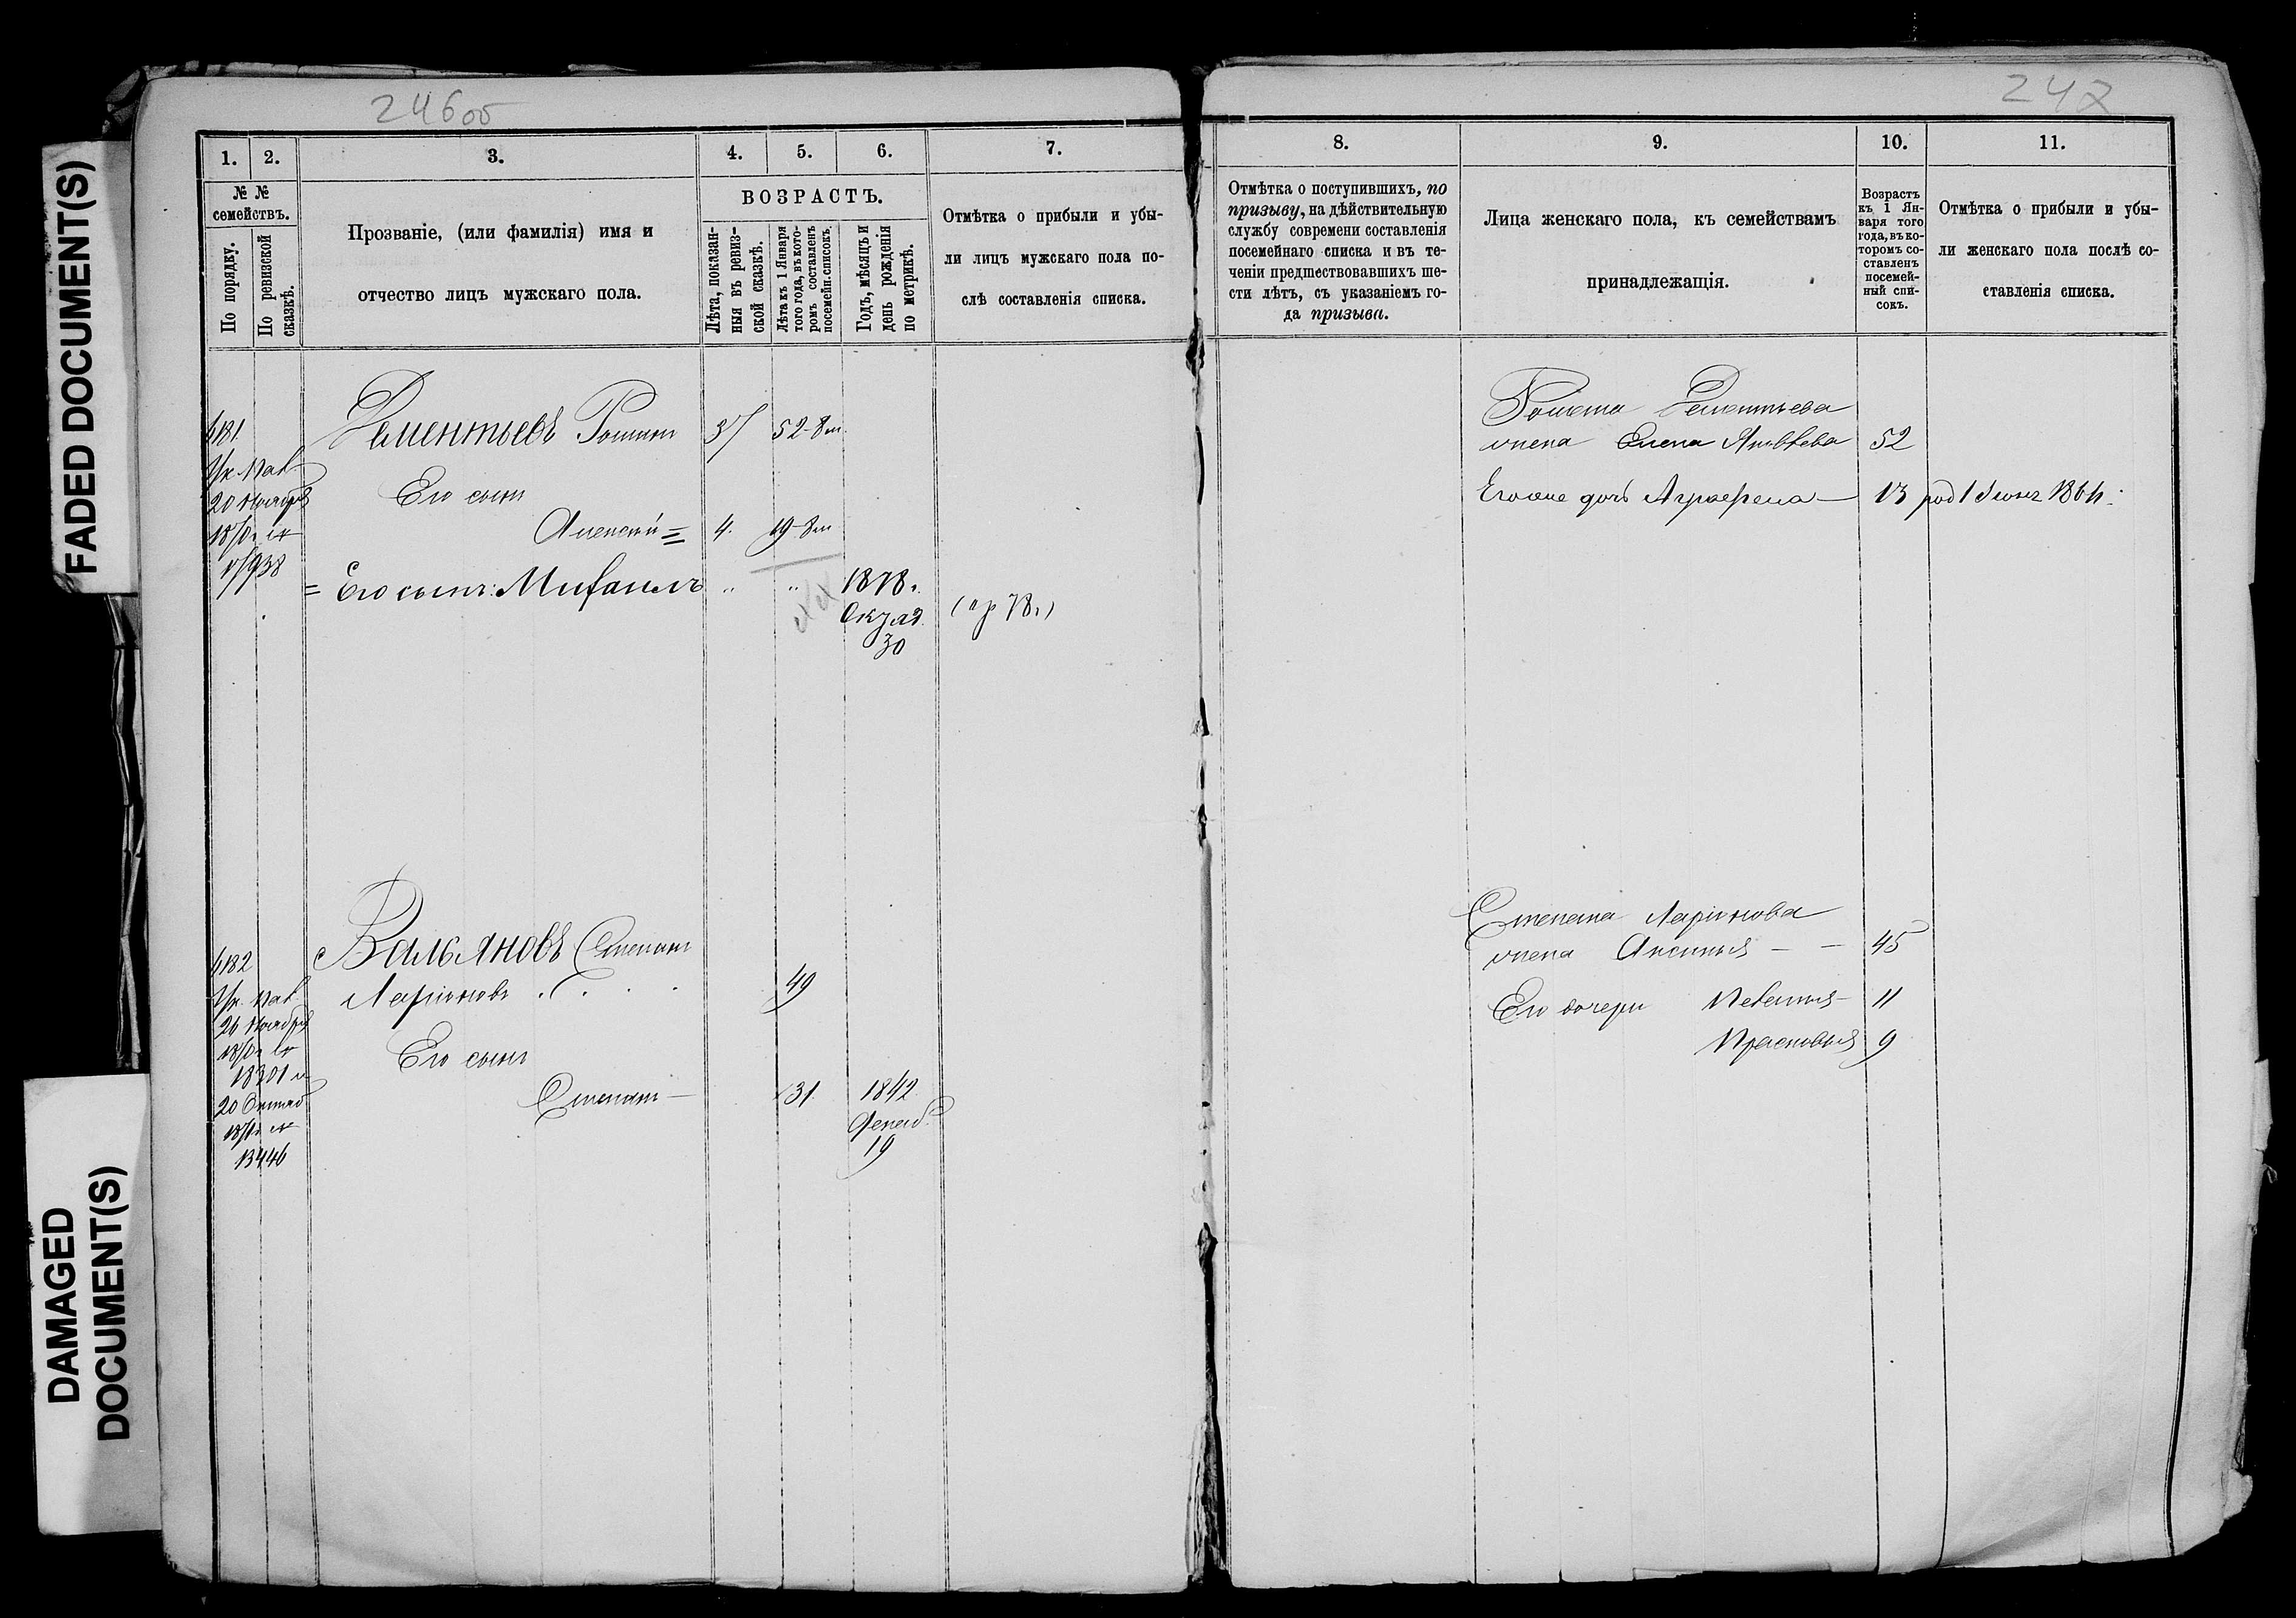 246об
247
FADED DOCUMENT(S)
DAMAGED
DOCUMENT(S)
1.
2.
3.
4.
5.
6.
7.
8.
9.
10.
11.
№ №
семействъ.
По порядку.
По ревизской
сказкѣ.
Прозваніе, (или фамилія) имя и
отчество лицъ мужскаго пола.
ВОЗРАСТЪ.
Лѣта, показан-
ныя въ ревиз-
ской сказкѣ.
Лѣта къ 1 Января
того года, въ кото-
ромъ составленъ
посемейн. списокъ
Годъ, мѣсяцъ и
день рожденія
по метрикѣ.
Отмѣтка о прибыли и убы-
ли лицъ мужскаго пола по-
слѣ составленія списка.
Отмѣтка о поступившихъ, по
призыву, на дѣйствительную
службу современи составленія
посемейнаго списка и въ те-
ченіи предшествовавшихъ ше-
сти лѣтъ, съ указаніемъ го-
да призыва.
Лица женскаго пола, къ семействамъ
принадлежащія.
Возрастъ
къ 1 Ян-
варя того
года, въ ко-
торомъ со-
ставленъ
посемей-
ный спи-
сокъ.
Отмѣтка о прибыли и убы-
ли женскаго пола послѣ со-
ставленія списка.
Дементьевъ Романъ 37 52-8м.
20 Ноября
Его сынъ
Алексѣй = 4. 19-8м
= Его сынъ: Михаилъ " " 1878г.
30
(пр 78г)
Романа Дементьева
жена Елена Яковлева 52
Его же дочь Аграфена — 13
Вальяновъ Степанъ
Ларіоновъ 49
26 Ноября
Его сынъ
Степанъ — 31. 1842
19
13446
Степана Ларіонова
жена Аксинья — — 45
Его дочери 11
Прасковья 9